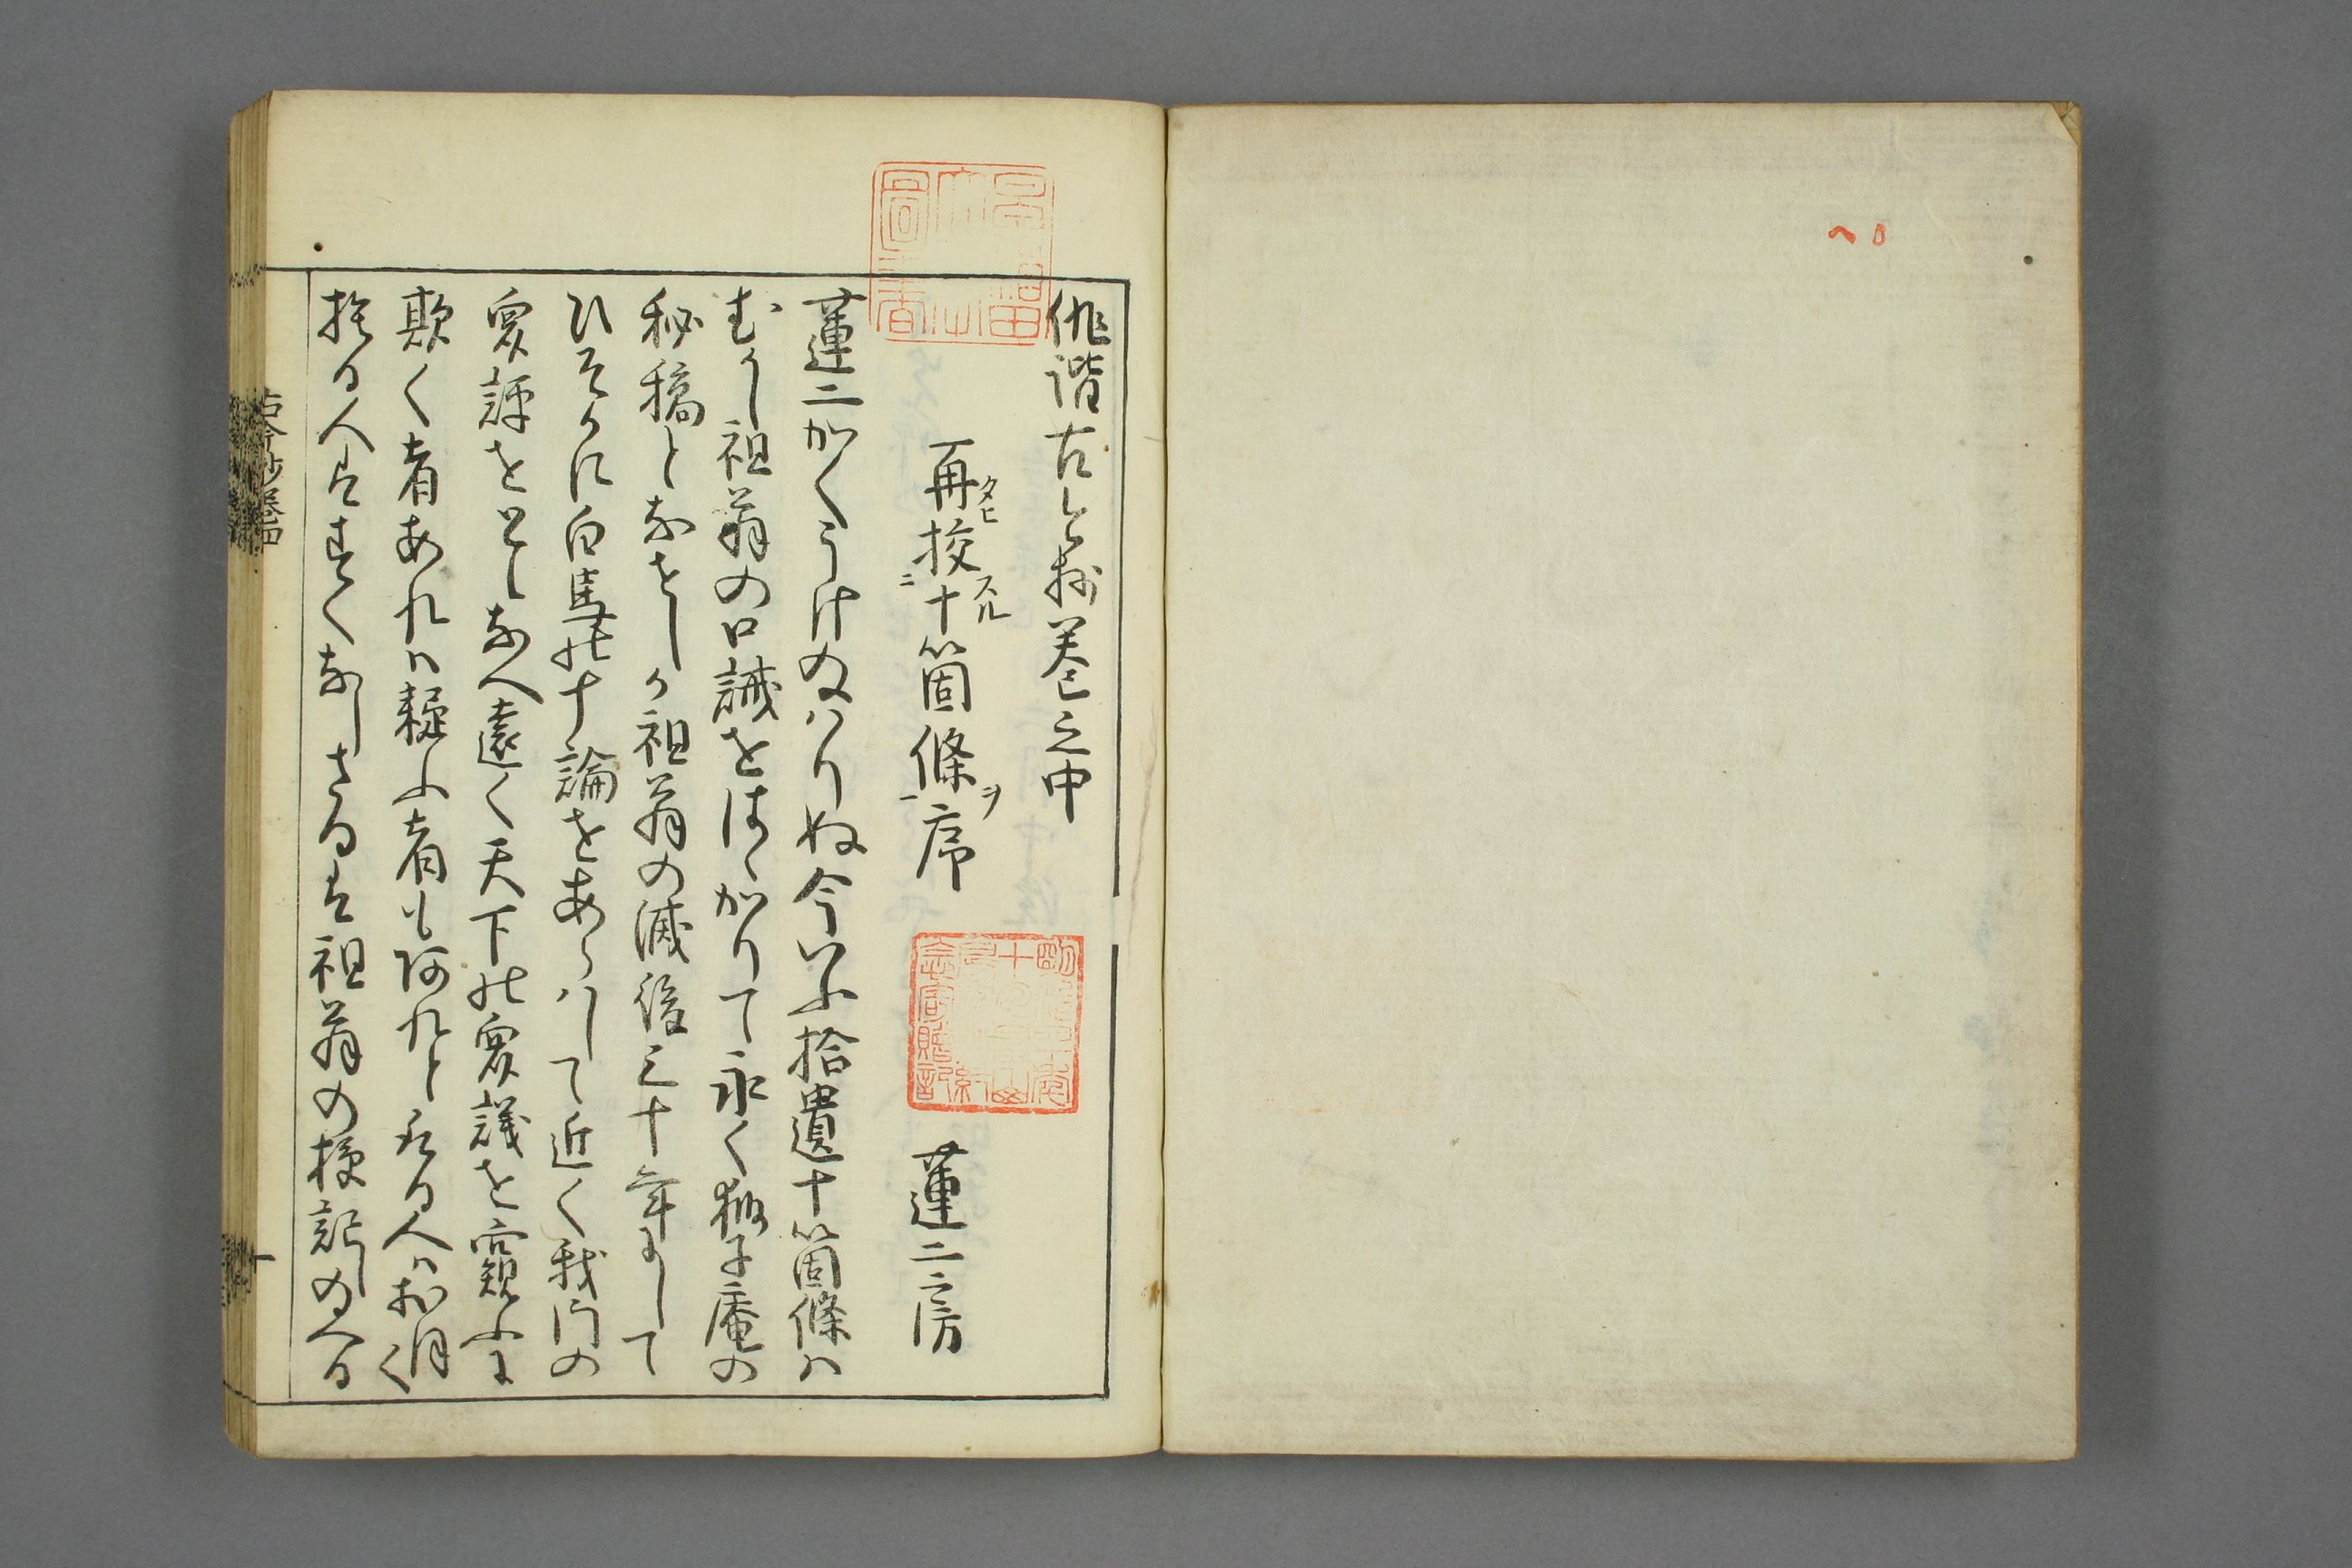 俳諧古今抄巻之中
再タヒ挍スル二十箇條ヲ一序
蓮二房
蓮二かくうけ給はりぬ今いふ拾遺十箇條ハ
むかし祖翁の口誡をはゝかりて永く獅子庵の
秘稿となせしか祖翁の滅後三十年にして
ひそかに白馬の十論をあらハして近く我門の
衆評をとしなへ遠く天下の衆議を窺ふに
欺く者あれハ疑ふ者も阿れと用る人ハおほく
捨る人はすくなしさるは祖翁の授記の給へる
古今抄 四
一